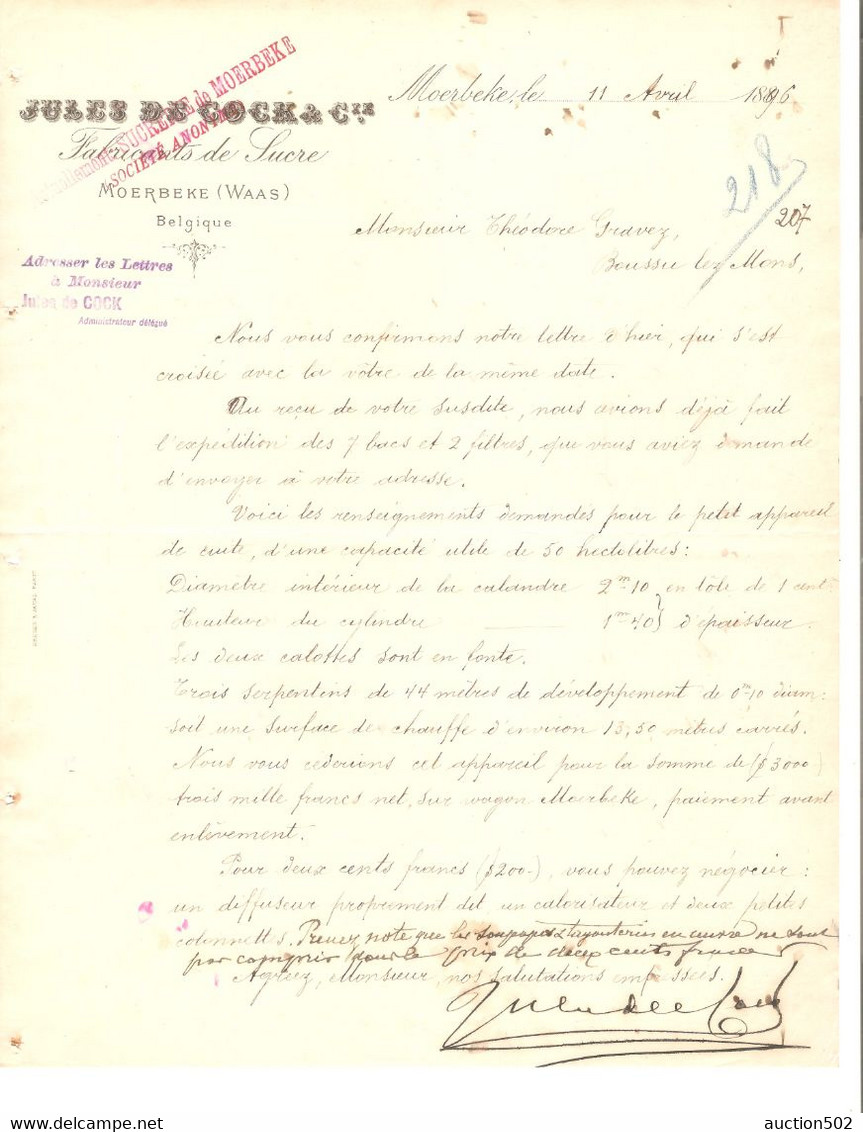 Actuellement SUCRERIE de MOERBEKE
SOCIÉTÉ ANONYME
JULES DE COCK & CIE
Fabricants de Sucre
MOERBEKE (WAAS)
Belgique
Moerbeke, le 11 Avril 1896
218
207
Monsieur Théodore Gravez,
Boussu lez Mons,
Adresser les Lettres
à Monsieur
Jules de COCK
Administrateur délégué
Nous vous confirmons notre lettre d'hier, qui s'est
croisée avec la vôtre de la même date.
Au reçu de votre susdite, nous avions déjà fait
l'expédition des 7 bacs et 2 filtres, que vous aviez demandé
d'envoyer à votre adresse.
Voici les renseignements demandés pour le petit appareil
de cuite, d'une capacité utile de 50 hectolitres:
Diamètre intérieur de la calandre 2m10 } en tôle de 1 cent.
Hauteur du cylindre — 1m40 } d'épaisseur.
Les deux calottes sont en fonte.
Trois serpentins de 44 mètres de développement de 0m10 diam:
soit une surface de chauffe d'environ 13,50 mètres carrés.
Nous vous cederions cet appareil pour la somme de (f 3000-)
trois mille francs net, sur wagon Moerbeke, paiement avant
enlèvement.
Pour deux cents francs (f 200-), vous pouvez négocier:
un diffuseur proprement dit un calorisateur et deux petites
colonnettes. Prenez note que les soupapes & tayauteries en cuivre ne sont
pas compris dans le prix de deux cents francs
Agréez, Monsieur, nos salutations empressées.
Jules de Cock
auction502